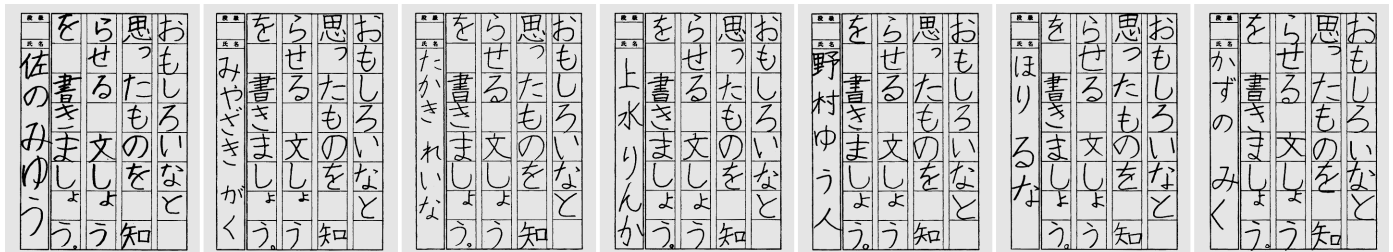 おもしろいなと
思ったものを 知
らせる 文しょう
を 書きましょう。
段級
氏名
佐のみゆう
おもしろいなと
思ったものを 知
らせる 文しょう
を 書きましょう。
段級
氏名
みやざき がく
おもしろいなと
思ったものを 知
らせる 文しょう
を 書きましょう。
段級
氏名
たかき れいな
おもしろいなと
思ったものを 知
らせる 文しょう
を 書きましょう。
段級
氏名
上水 りんか
おもしろいなと
思ったものを 知
らせる 文しょう
を 書きましょう。
段級
氏名
野村ゆう人
おもしろいなと
思ったものを 知
らせる 文しょう
を 書きましょう。
段級
氏名
ほり るな
おもしろいなと
思ったものを 知
らせる 文しょう
を 書きましょう。
段級
氏名
かずの みく